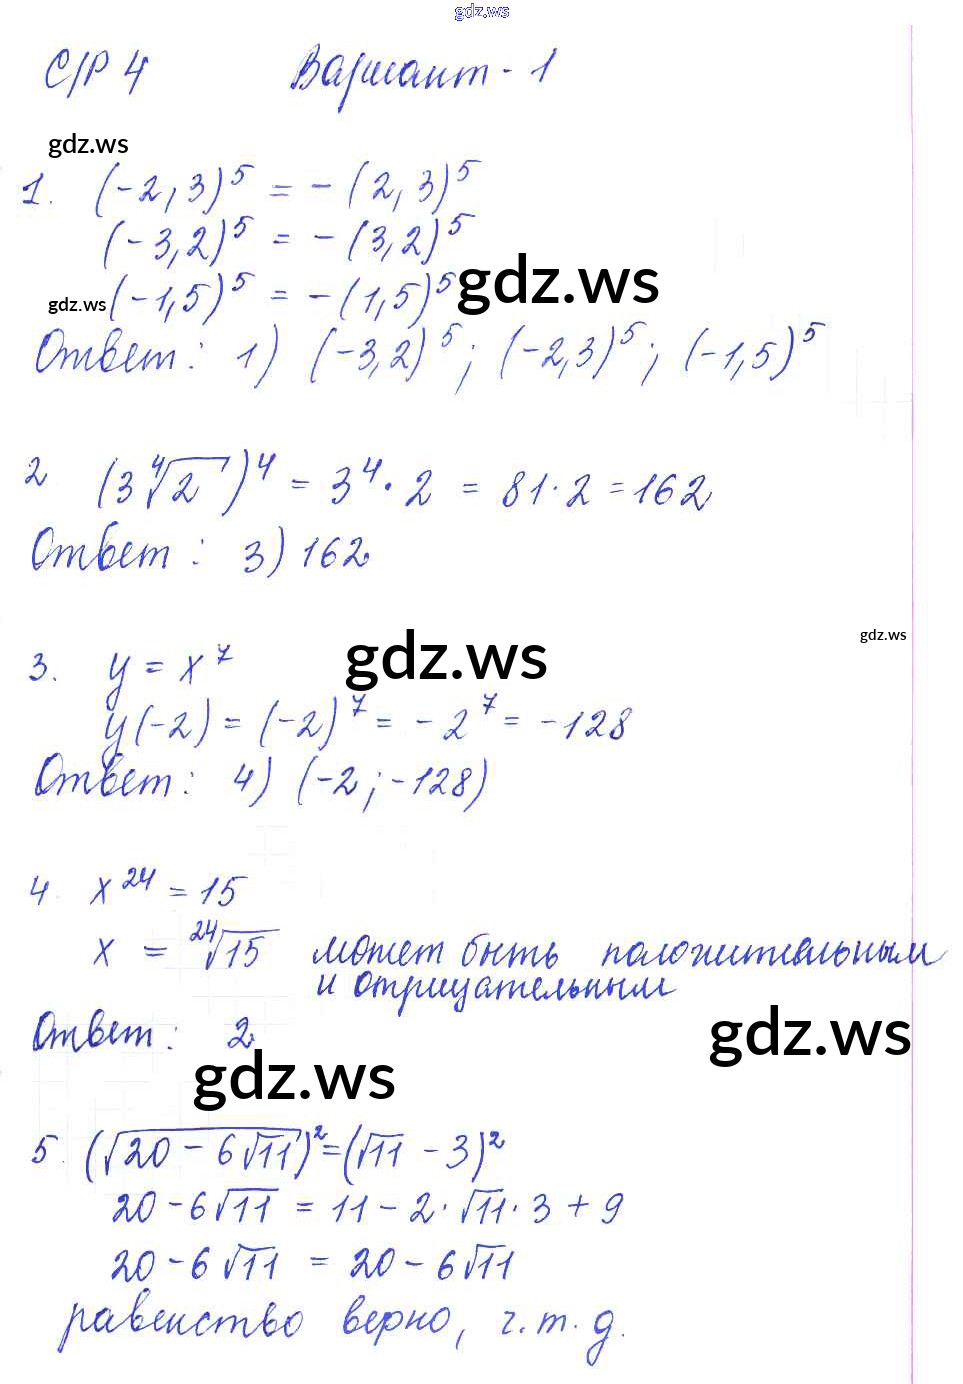 gdz.ws
С/Р 4 Вариант - 1
gdz.ws
1. (-2,3)⁵ = -(2,3)⁵
(-3,2)⁵ = -(3,2)⁵
gdz.ws
gdz.ws (-1,5)⁵ = -(1,5)⁵
Ответ: 1) (-3,2)⁵; (-2,3)⁵; (-1,5)⁵
2 (3∜2)⁴ = 3⁴·2 = 81·2 = 162
Ответ: 3) 162
gdz.ws
3. y = x⁷
gdz.ws
y(-2) = (-2)⁷ = -2⁷ = -128
Ответ: 4) (-2; -128)
4. x²⁴ = 15
x = ²⁴√15 может быть положительным
и отрицательным
Ответ: 2
gdz.ws
gdz.ws
5. (√(20 - 6√11))² = (√11 - 3)²
20 - 6√11 = 11 - 2·√11·3 + 9
20 - 6√11 = 20 - 6√11
равенство верно, ч.т.д.